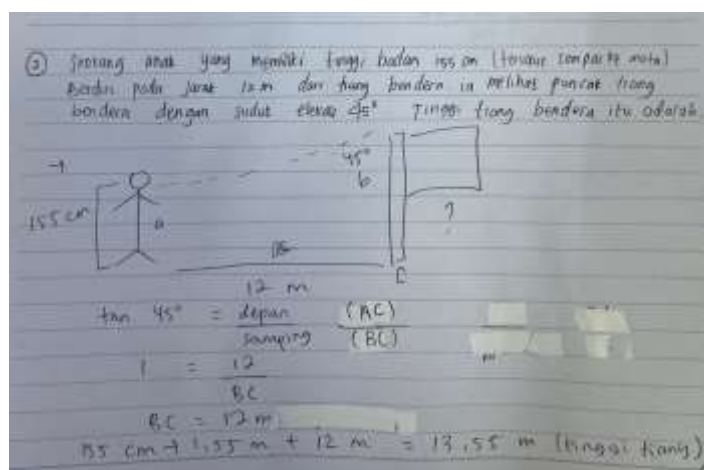 ② Seorang anak yang memiliki tinggi badan 155 cm (terukur sampai ke mata)
Berdiri pada jarak 12 m dari tiang bendera ia melihat puncak tiang
bendera dengan sudut elevasi 45° Tinggi tiang bendera itu adalah
45°
b
155 cm
a
?
C
12 m
tan 45° = depan (AC)
samping (BC)
1 = 12
BC
BC = 12 m
155 cm → 1,55 m + 12 m = 13,55 m (tinggi tiang)